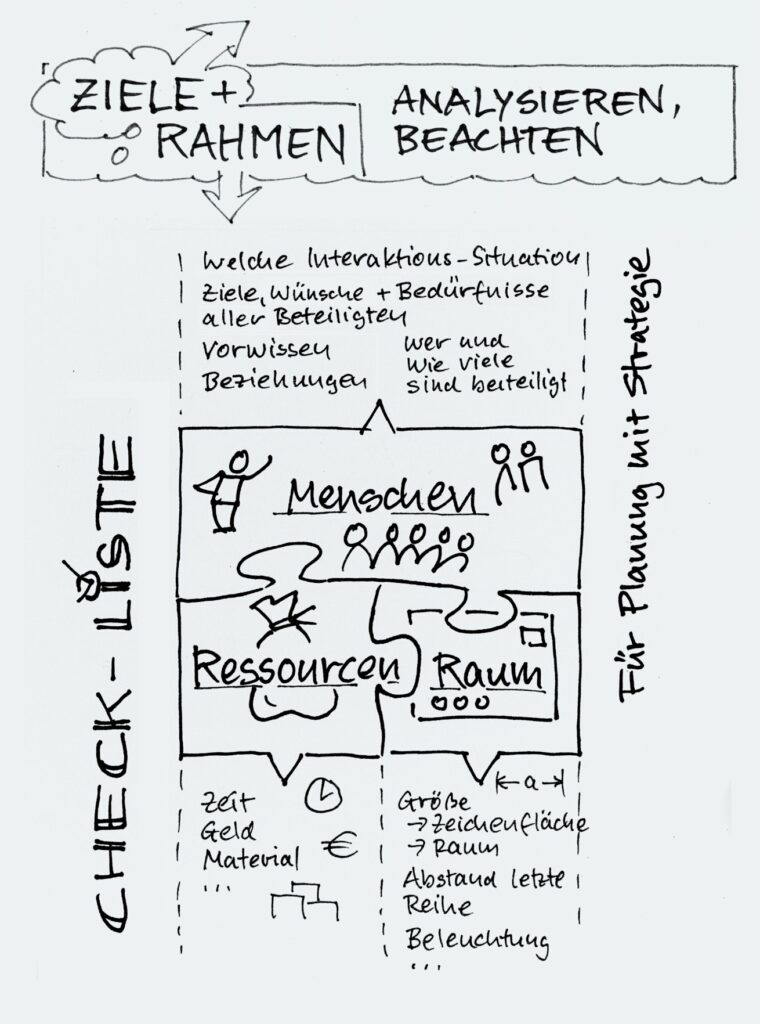 ZIELE +
RAHMEN
ANALYSIEREN,
BEACHTEN
Welche Interaktions-Situation
Ziele, Wünsche + Bedürfnisse
aller Beteiligten
Vorwissen
Beziehungen
wer und
wie viele
sind beiteiligt
CHECK-LISTE
Für Planung mit Strategie
Menschen
Ressourcen
Raum
Zeit
Geld
€
Material
...
a
Größe
→ Zeichenfläche
→ Raum
Abstand letzte
Reihe
Beleuchtung
...